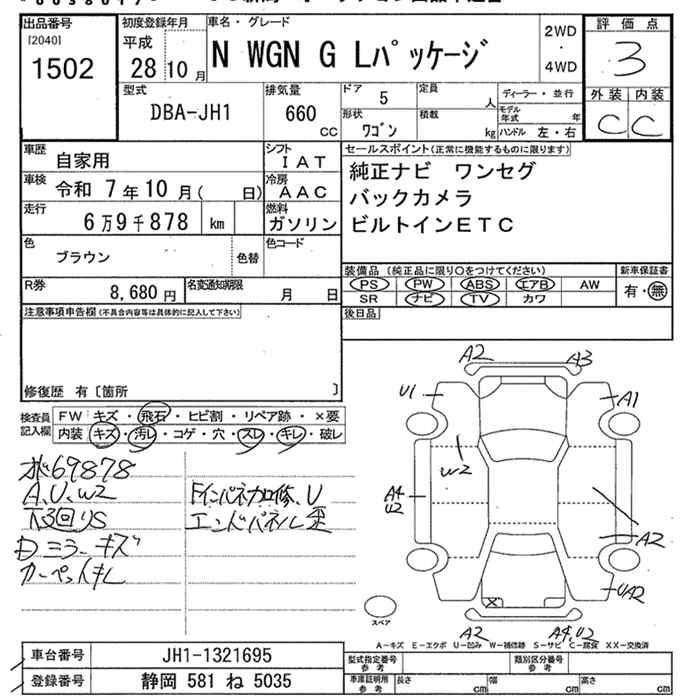 出品番号
[2040]
1502
初度登録年月
平成
28 10 月
車名・グレード
N WGN G Lパッケージ
2WD
・
4WD
評価点
3
外装 内装
C C
型式
DBA-JH1
排気量
660
cc
ドア
5
形状
ワゴン
定員
人
積載
kg
ディーラー・並行
モデル年式 年
ハンドル 左・右
車歴
自家用
シフト
IAT
車検
令和 7年10月( 日)
冷房
AAC
走行
6万9千878 km
燃料
ガソリン
色
ブラウン
色替
色コード
R券
8,680 円
名変通知期限
月 日
セールスポイント(正常に機能するものに限ります)
純正ナビ ワンセグ
バックカメラ
ビルトインETC
装備品 (純正品に限り○をつけてください)
PS PW ABS エアB AW
SR ナビ TV カワ
新車保証書
有・無
後日品
注意事項申告欄(不具合内容等は具体的に記入して下さい)
修復歴 有〔箇所 〕
検査員記入欄
FW キズ・飛石・ヒビ割・リペア跡・×要
内装 キズ・汚レ・コゲ・穴・スレ・キレ・破レ
69878
A、U、W2
下回りS
ミラーキズ
カーペットキレ
エンドパネル歪
A2
A3
U1
A1
W2
A4
U2
A2
UA2
A2
A4,U2
スペア
A－キズ E－エクボ U－凹み W－補修跡 S－サビ C－腐食 XX－交換済
車台番号
JH1-1321695
登録番号
静岡 581 ね 5035
型式指定番号
参考
類別区分番号
参考
車庫証明用
参考
長さ cm
幅 cm
高さ cm